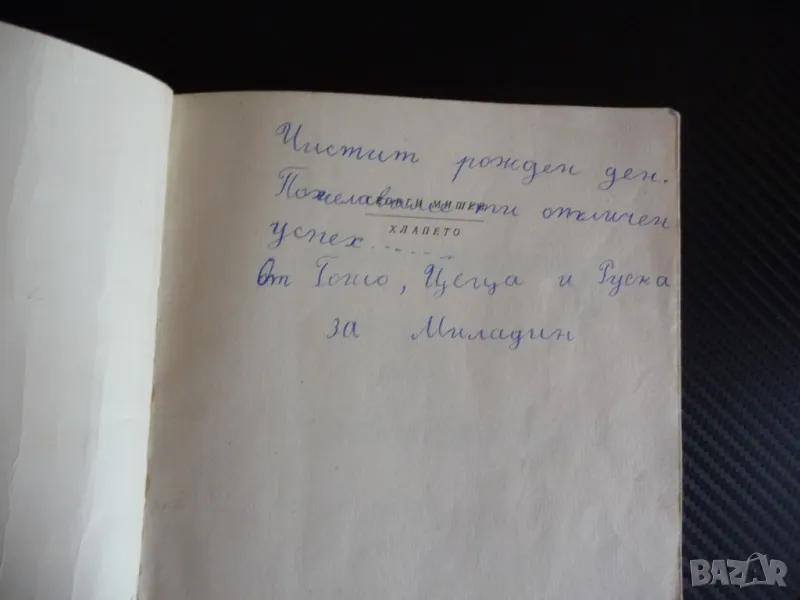 Чистит рожден ден.
Пожелаваме ти отличен
ГЕОРГИ МИШЕВ
ХЛАПЕТО
успех......
От Гошо, Цеца и Руска
за Миладин
BAZAR